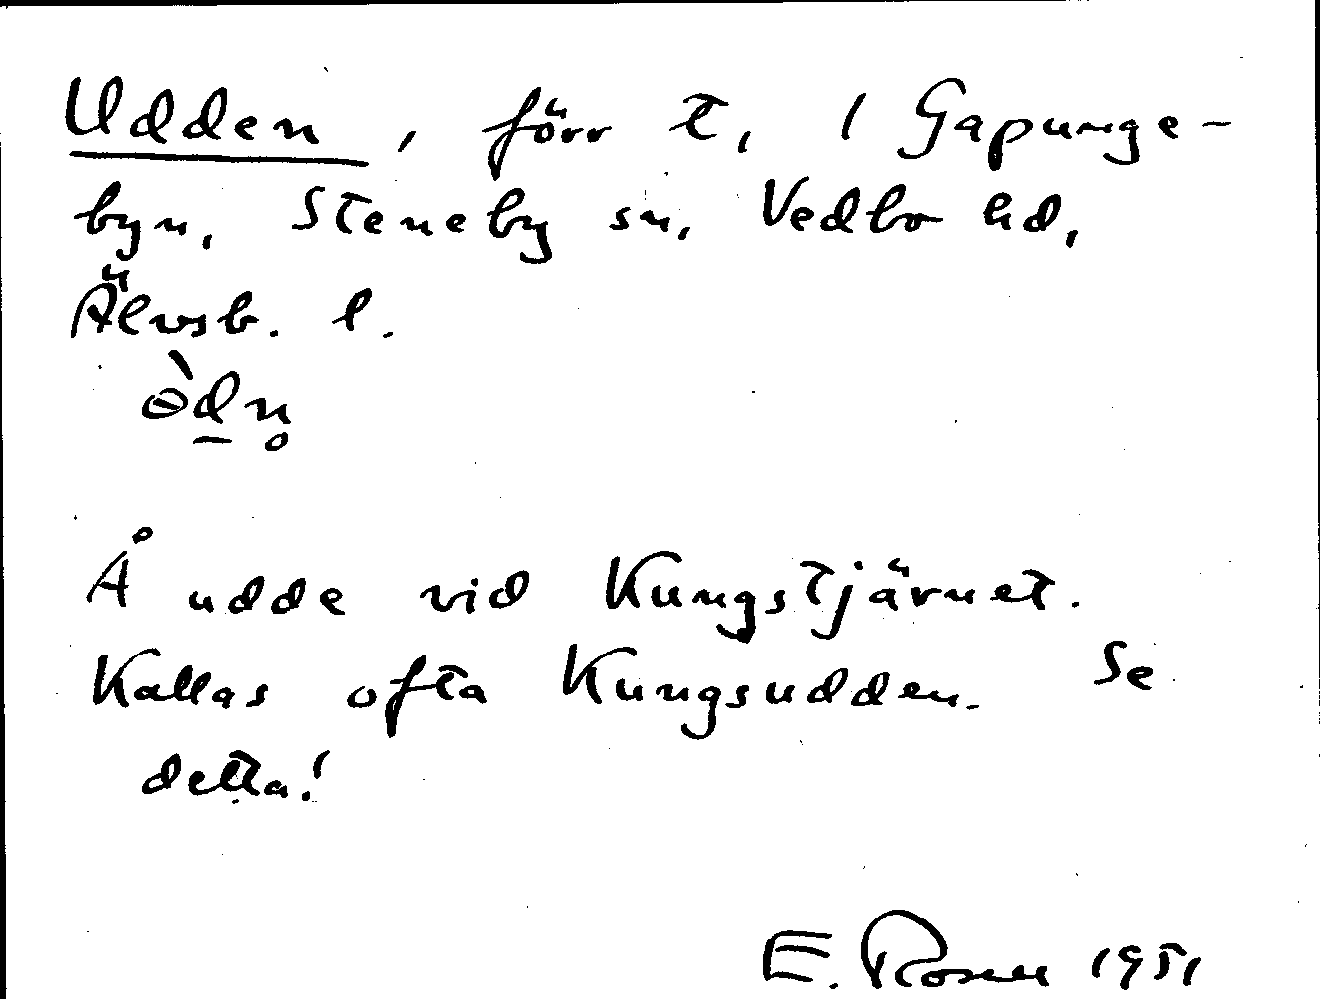 Udden, förr t, / Gapunge-
byn, Steneby sn, Vedbo hd,
Älvsb. l.
ɵ̀d̲n̥
Å udde vid Kungstjärnet.
Kallas ofta Kungsudden. Se
detta!
E. Rosell 1951